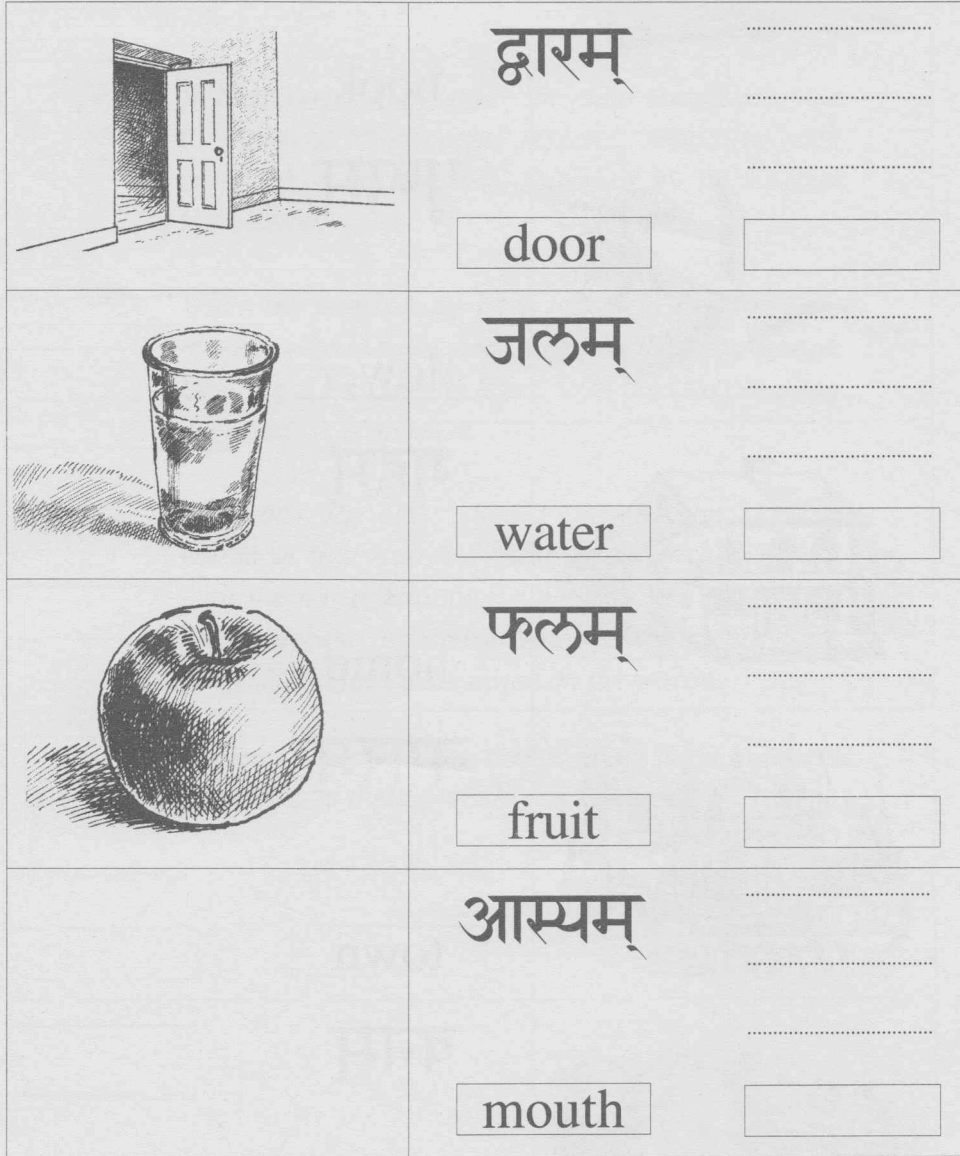 द्वारम्
door
जलम्
water
फलम्
fruit
आस्यम्
mouth